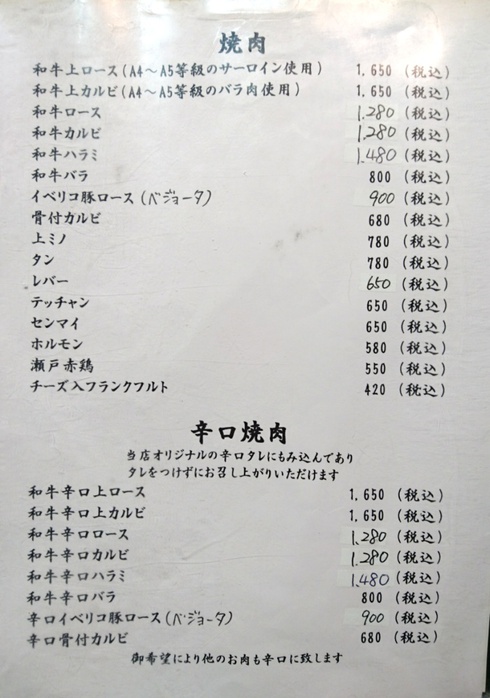 焼肉
和牛上ロース(A4～A5等級のサーロイン使用) 1,650 (税込)
和牛上カルビ(A4～A5等級のバラ肉使用) 1,650 (税込)
和牛ロース 1,280 (税込)
和牛カルビ 1,280 (税込)
和牛ハラミ 1,480 (税込)
和牛バラ 800 (税込)
イベリコ豚ロース(ベジョータ) 900 (税込)
骨付カルビ 680 (税込)
上ミノ 780 (税込)
タン 780 (税込)
レバー 650 (税込)
テッチャン 650 (税込)
センマイ 650 (税込)
ホルモン 580 (税込)
瀬戸赤鶏 550 (税込)
チーズ入フランクフルト 420 (税込)
辛口焼肉
当店オリジナルの辛口タレにもみ込んであり
タレをつけずにお召し上がりいただけます
和牛辛口上ロース 1,650 (税込)
和牛辛口上カルビ 1,650 (税込)
和牛辛口ロース 1,280 (税込)
和牛辛口カルビ 1,280 (税込)
和牛辛口ハラミ 1,480 (税込)
和牛辛口バラ 800 (税込)
辛口イベリコ豚ロース(ベジョータ) 900 (税込)
辛口骨付カルビ 680 (税込)
御希望により他のお肉も辛口に致します